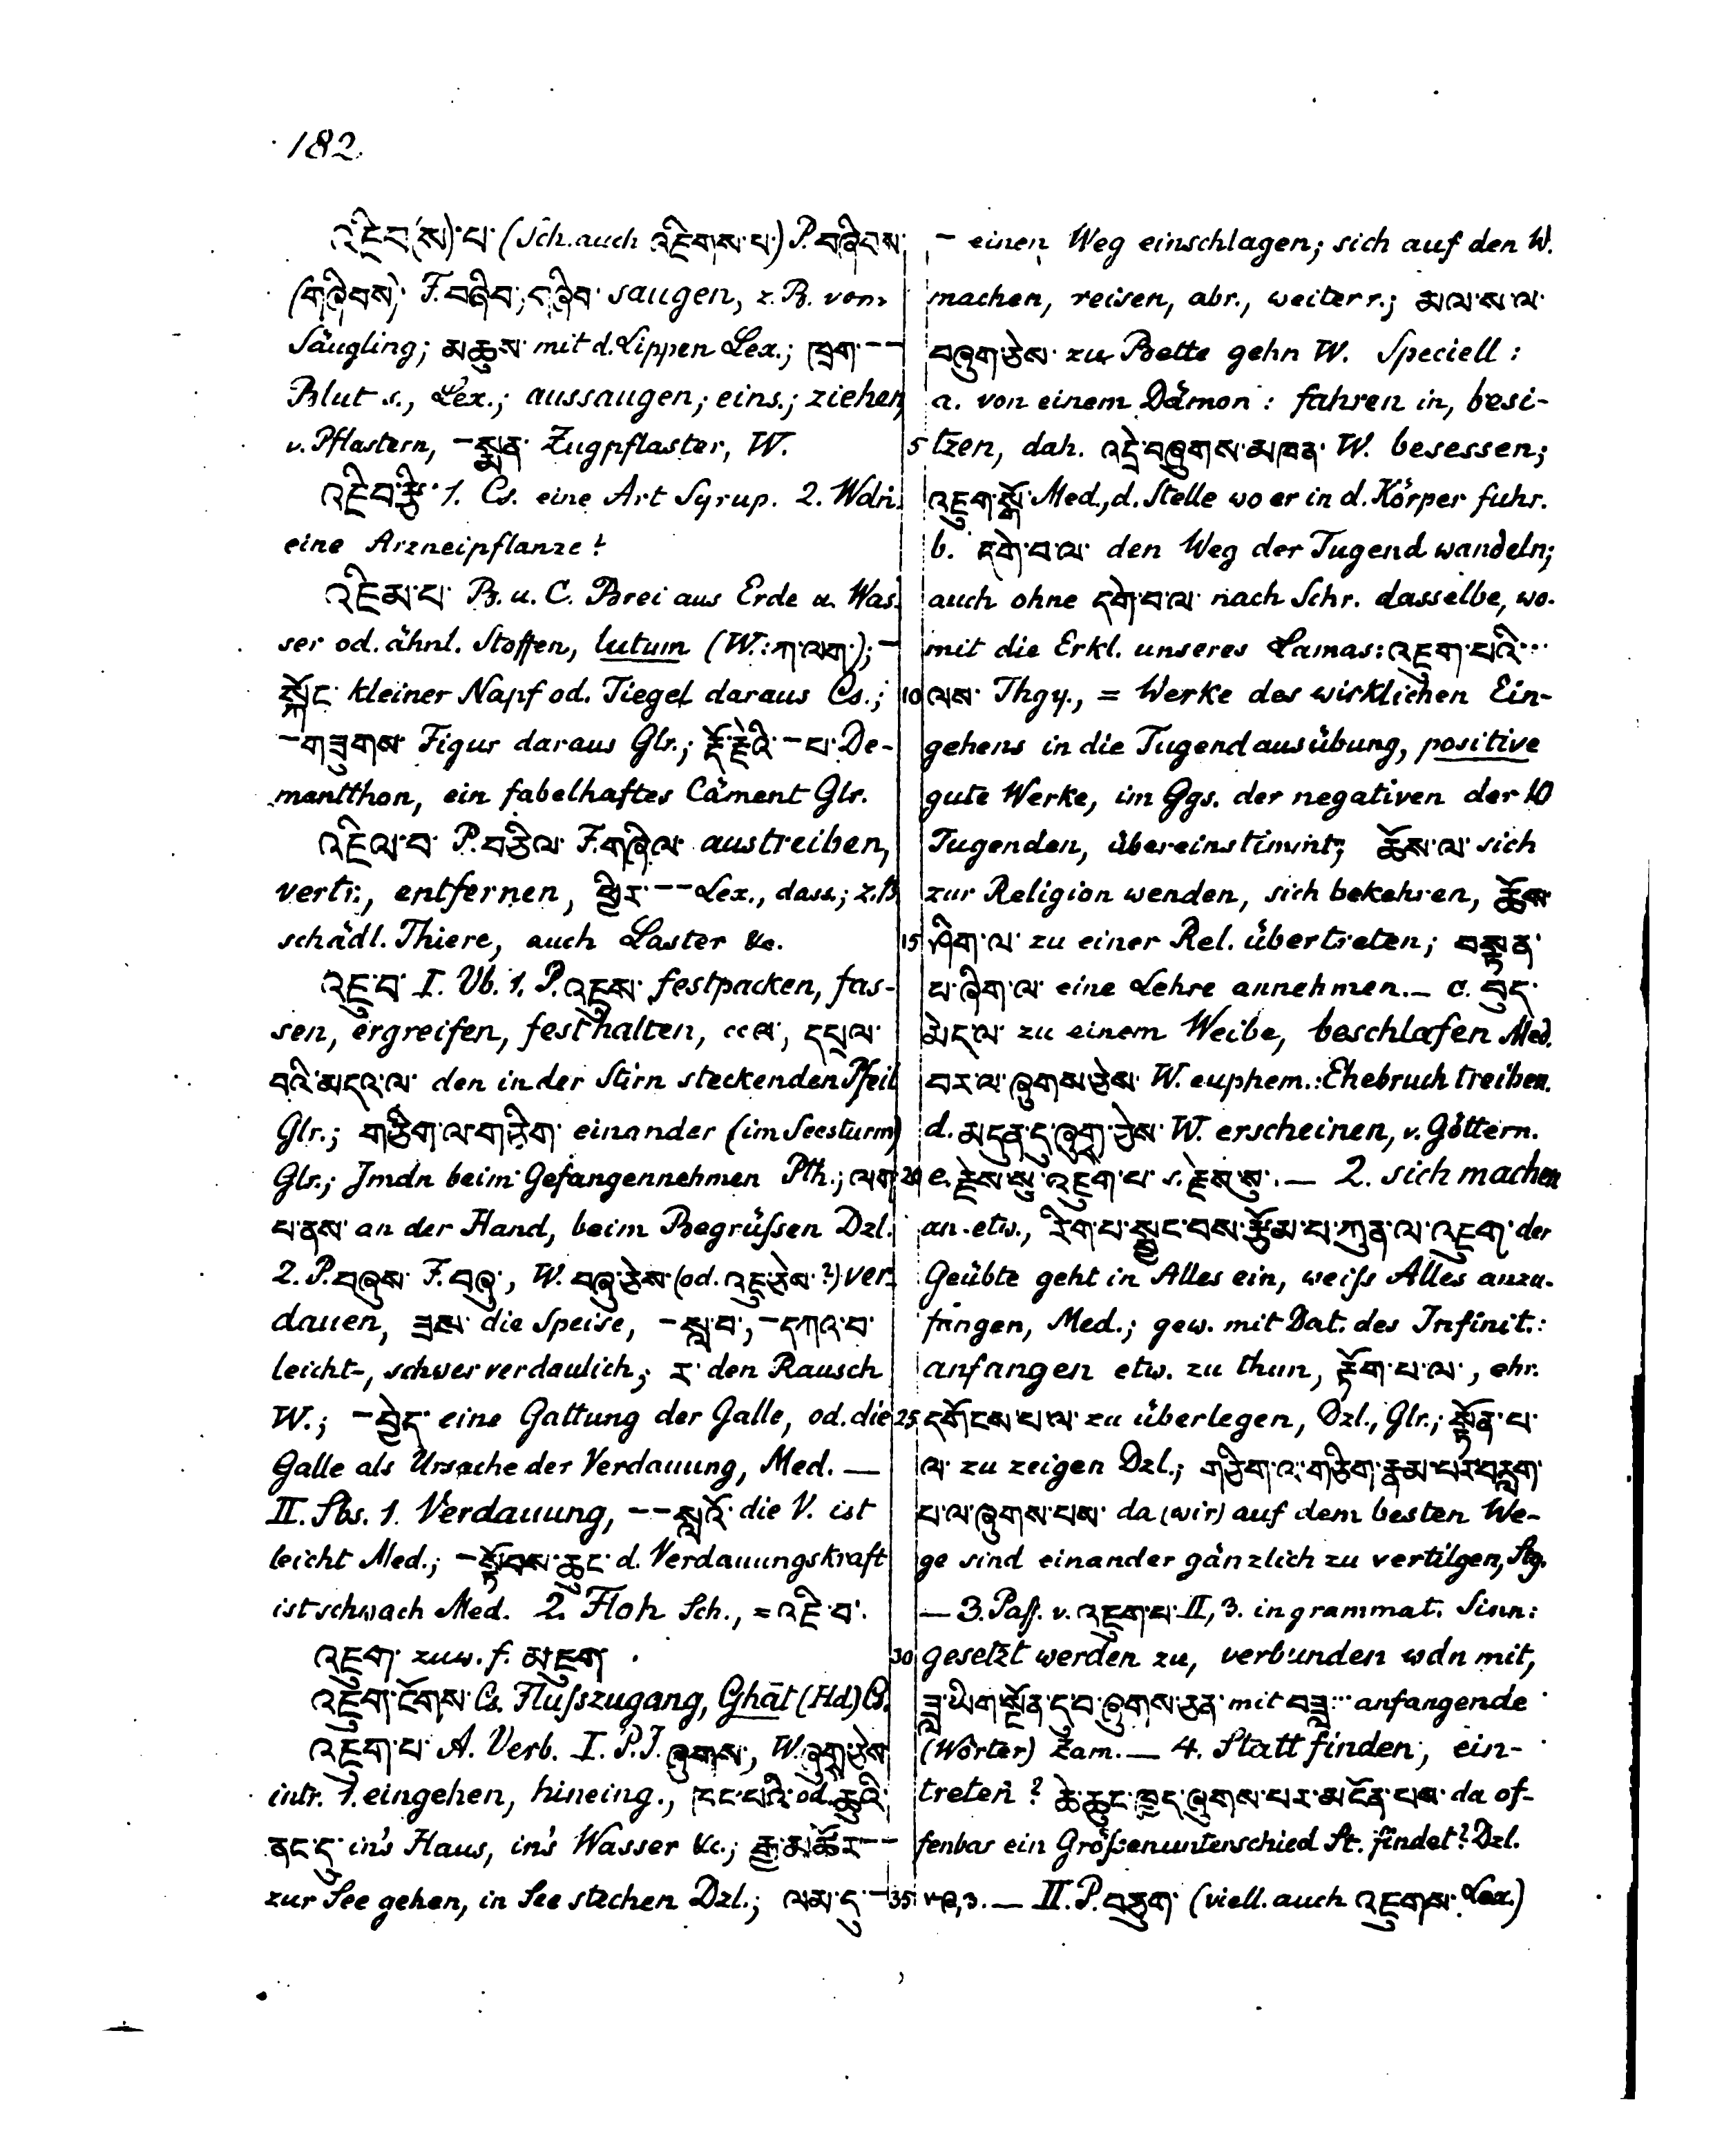 182.
འཇིབ(ས)་པ་ (Sch. auch འཇིགས་པ་) P. བཞིབས་
(གཞིབས), F. བཞིབ་, གཞིབ་ saugen, z.B. vom
Säugling; མཆུས་ mit d. Lippen Lex.; ཁྲག་ --
Blut s., Lex.; aussaugen; eins.; ziehen,
v. Pflastern, -སྨན་ Zugpflaster, W.
འཇིབ་རྩི་ 1. Cs. eine Art Syrup. 2. Wdn.
eine Arzneipflanze?
འཇིམ་པ་ B. u. C. Brei aus Erde u. Was-
ser od. ähnl. Stoffen, lutum (W.: ཀ་ལག་); -
སྐོང་ kleiner Napf od. Tiegel daraus Cs.;
-གཟུགས་ Figur daraus Glr.; རྡོ་རྗེའི་ -པ་ De-
mantthon, ein fabelhaftes Cäment Glr.
འཇིལ་བ་ P. བཅིལ་ F. གཞིལ་ austreiben,
vertr., entfernen, ཕྱིར་ -- Lex., dass.; z.B.
schädl. Thiere, auch Laster &c.
འཇུ་བ་ I. Vb. 1. P. འཇུས་ festpacken, fas-
sen, ergreifen, festhalten, cc ལ་, དཔྲལ་
བའི་མདའ་ལ་ den in der Stirn steckenden Pfeil
Glr.; གཅིག་ལ་གཅིག་ einander (im Seesturm)
Glr.; Jmdn beim Gefangennehmen Pth.; ལག་
པ་ནས་ an der Hand, beim Begrüßen Dzl.
2. P. བཞུས་ F. བཞུ་, W. བཞུ་ཅེས་ (od. འཇུ་ཅེས་?) ver-
dauen, ཟས་ die Speise, -སླ་བ་, -དཀའ་བ་
leicht-, schwer verdaulich; ར་ den Rausch
W.; -བྱེད་ eine Gattung der Galle, od. die
Galle als Ursache der Verdauung, Med. —
II. Sbs. 1. Verdauung, --སླའོ་ die V. ist
leicht Med.; -སྟོབས་ཆུང་ d. Verdauungskraft
ist schwach Med. 2. Floh Sch., = འཇི་བ་.
འཇུག་ zuw. f. མཇུག་.
འཇུག་ངོགས་ Cs. Flußzugang, Ghāt (Hd) Cs.
འཇུག་པ་ A. Verb. I. P.I. ཞུགས་, W. ཞུག་ཅེས་
intr. 1. eingehen, hineing., ཁང་པའི་ od. ཆུའི་
ནང་དུ་ in's Haus, in's Wasser &c.; རྒྱ་མཚོར་ --
zur See gehen, in See stechen Dzl.; ལམ་དུ་ -
- einen Weg einschlagen; sich auf den W.
machen, reisen, abr., weiter r.; མལ་ས་ལ་
བཞུག་ཅེས་ zu Bette gehn W. Speciell:
a. von einem Dämon: fahren in, besi-
5 tzen, dah. འདྲེ་བཞུགས་མཁན་ W. besessen;
འཇུག་སྒོ་ Med., d. Stelle wo er in d. Körper fuhr.
b. དགེ་བ་ལ་ den Weg der Tugend wandeln;
auch ohne དགེ་བ་ལ་ nach Schr. dasselbe, wo-
mit die Erkl. unseres Lamas: འཇུག་པའི་...
10 ལས་ Thgy., = Werke des wirklichen Ein-
gehens in die Tugendausübung, positive
gute Werke, im Ggs. der negativen der 10
Tugenden, übereinstimmt; ཆོས་ལ་ sich
zur Religion wenden, sich bekehren, ཆོས་
15 ཞིག་ལ་ zu einer Rel. übertreten; བསྟན་
པ་ཞིག་ལ་ eine Lehre annehmen. — c. བུད་
མེད་ལ་ zu einem Weibe, beschlafen Med.
བར་ལ་ཞུགས་ཅེས་ W. euphem.: Ehebruch treiben.
d. མདུན་དུ་ཞུག་ཅེས་ W. erscheinen, v. Göttern.
20 e. རྗེས་སུ་འཇུག་པ་ s. རྗེས་སུ་. — 2. sich machen
an etw., རིག་པ་སྦྱང་བས་རྩོམ་པ་ཀུན་ལ་འཇུག་ der
Geübte geht in Alles ein, weiß Alles anzu-
fangen, Med.; gew. mit Dat. des Infinit.:
anfangen etw. zu thun, རྟོག་པ་ལ་, ehr.
25 དགོངས་པ་ལ་ zu überlegen, Dzl., Glr.; སྟོན་པ་
ལ་ zu zeigen Dzl.; གཅིག་ལ་གཅིག་རྣམ་པར་བརླག་
པ་ལ་ཞུགས་པས་ da (wir) auf dem besten We-
ge sind einander gänzlich zu vertilgen, Stg.
— 3. Paß. v. འཇུག་པ་ II, 3. in grammat. Sinn:
30 gesetzt werden zu, verbunden wdn mit,
ཟླ་ཡིག་སྔོན་དུ་བ་ཞུགས་ཅན་ mit བཟླ... anfangende
(Wörter) Zam. — 4. Statt finden, ein-
treten? ཆེ་ཆུང་ཁྱད་ཞུགས་པར་མངོན་པས་ da of-
fenbar ein Größenunterschied St. findet? Dzl.
35 ༢༧,3. — II. P. བཅུག་ (viell. auch འཇུགས་ Lex.)